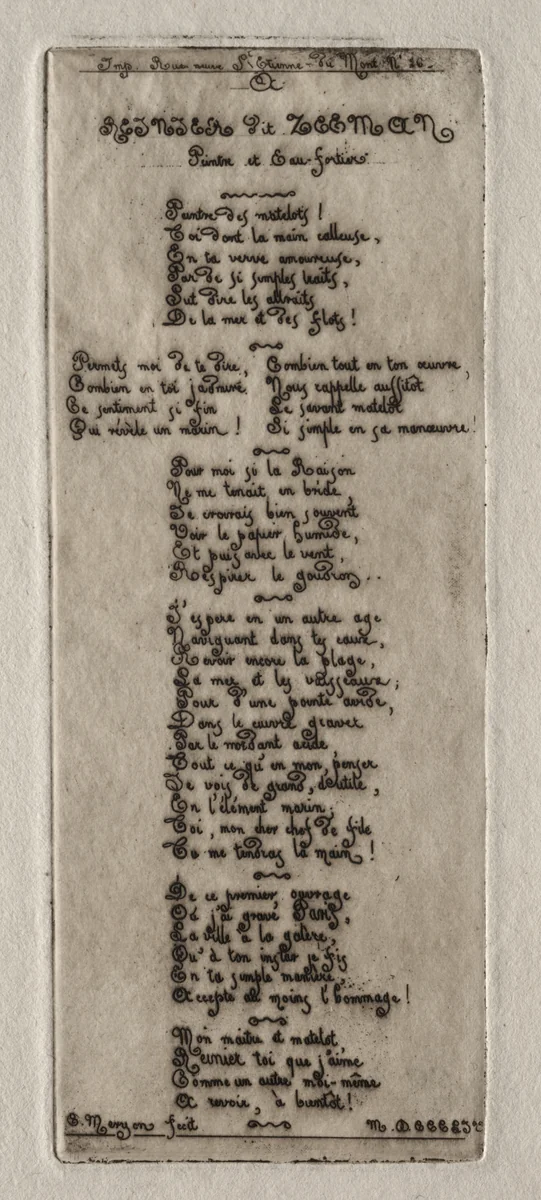 Imp. Rue neuve St Etienne-du Mont No 26.
A
REINIER dit ZEEMAN
Peintre et Eau-fortier.
Peintre des matelots !
Toi dont la main calleuse,
En ta verve amoureuse,
Par de si simples traits,
Sut dire les attraits
De la mer et des flots !
Permets moi de te dire,
Combien en toi j'admire
Ce sentiment si fin
Qui révèle un marin !
Combien tout en ton œuvre,
Nous rappelle aussitot
Le savant matelot
Si simple en sa manœuvre !
Pour moi si la Raison
Ne me tenait en bride,
Je croirais bien souvent
Voir le papier humide,
Et puis avec le vent,
Respirer le goudron..
J'espere en un autre age
Naviguant dans tes eaux,
Revoir encore la plage,
La mer et les vaisseaux ;
Pour d'une pointe avide,
Dans le cuivre graver
Par le mordant acide
Tout ce qu'en mon penser
Je vois de grand, d'utile,
En l'élément marin ;
Toi, mon cher chef de file
Tu me tendras la main !
De ce premier ouvrage
Où j'ai gravé Paris,
La ville à la galère,
Qu'à ton instar je fis
En ta simple manière,
Accepte au moins l'hommage !
Mon maitre et matelot
Reinier toi que j'aime
Comme un autre moi-même
A revoir, à bientôt !
C. Meryon fecit